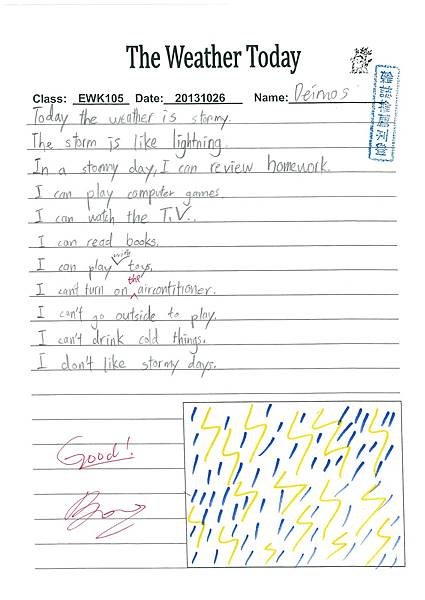 The Weather Today
Class: EWK105 Date: 20131026 Name: Deimos
Today the weather is stormy.
The storm is like lightning.
In a stormy day, I can review homework.
I can play computer games
I can watch the T.V..
I can read books.
with
I can play toys.
the
I can't turn on aircontitioner.
I can't go outside to play.
I can't drink cold things.
I don't like stormy days.
Good!